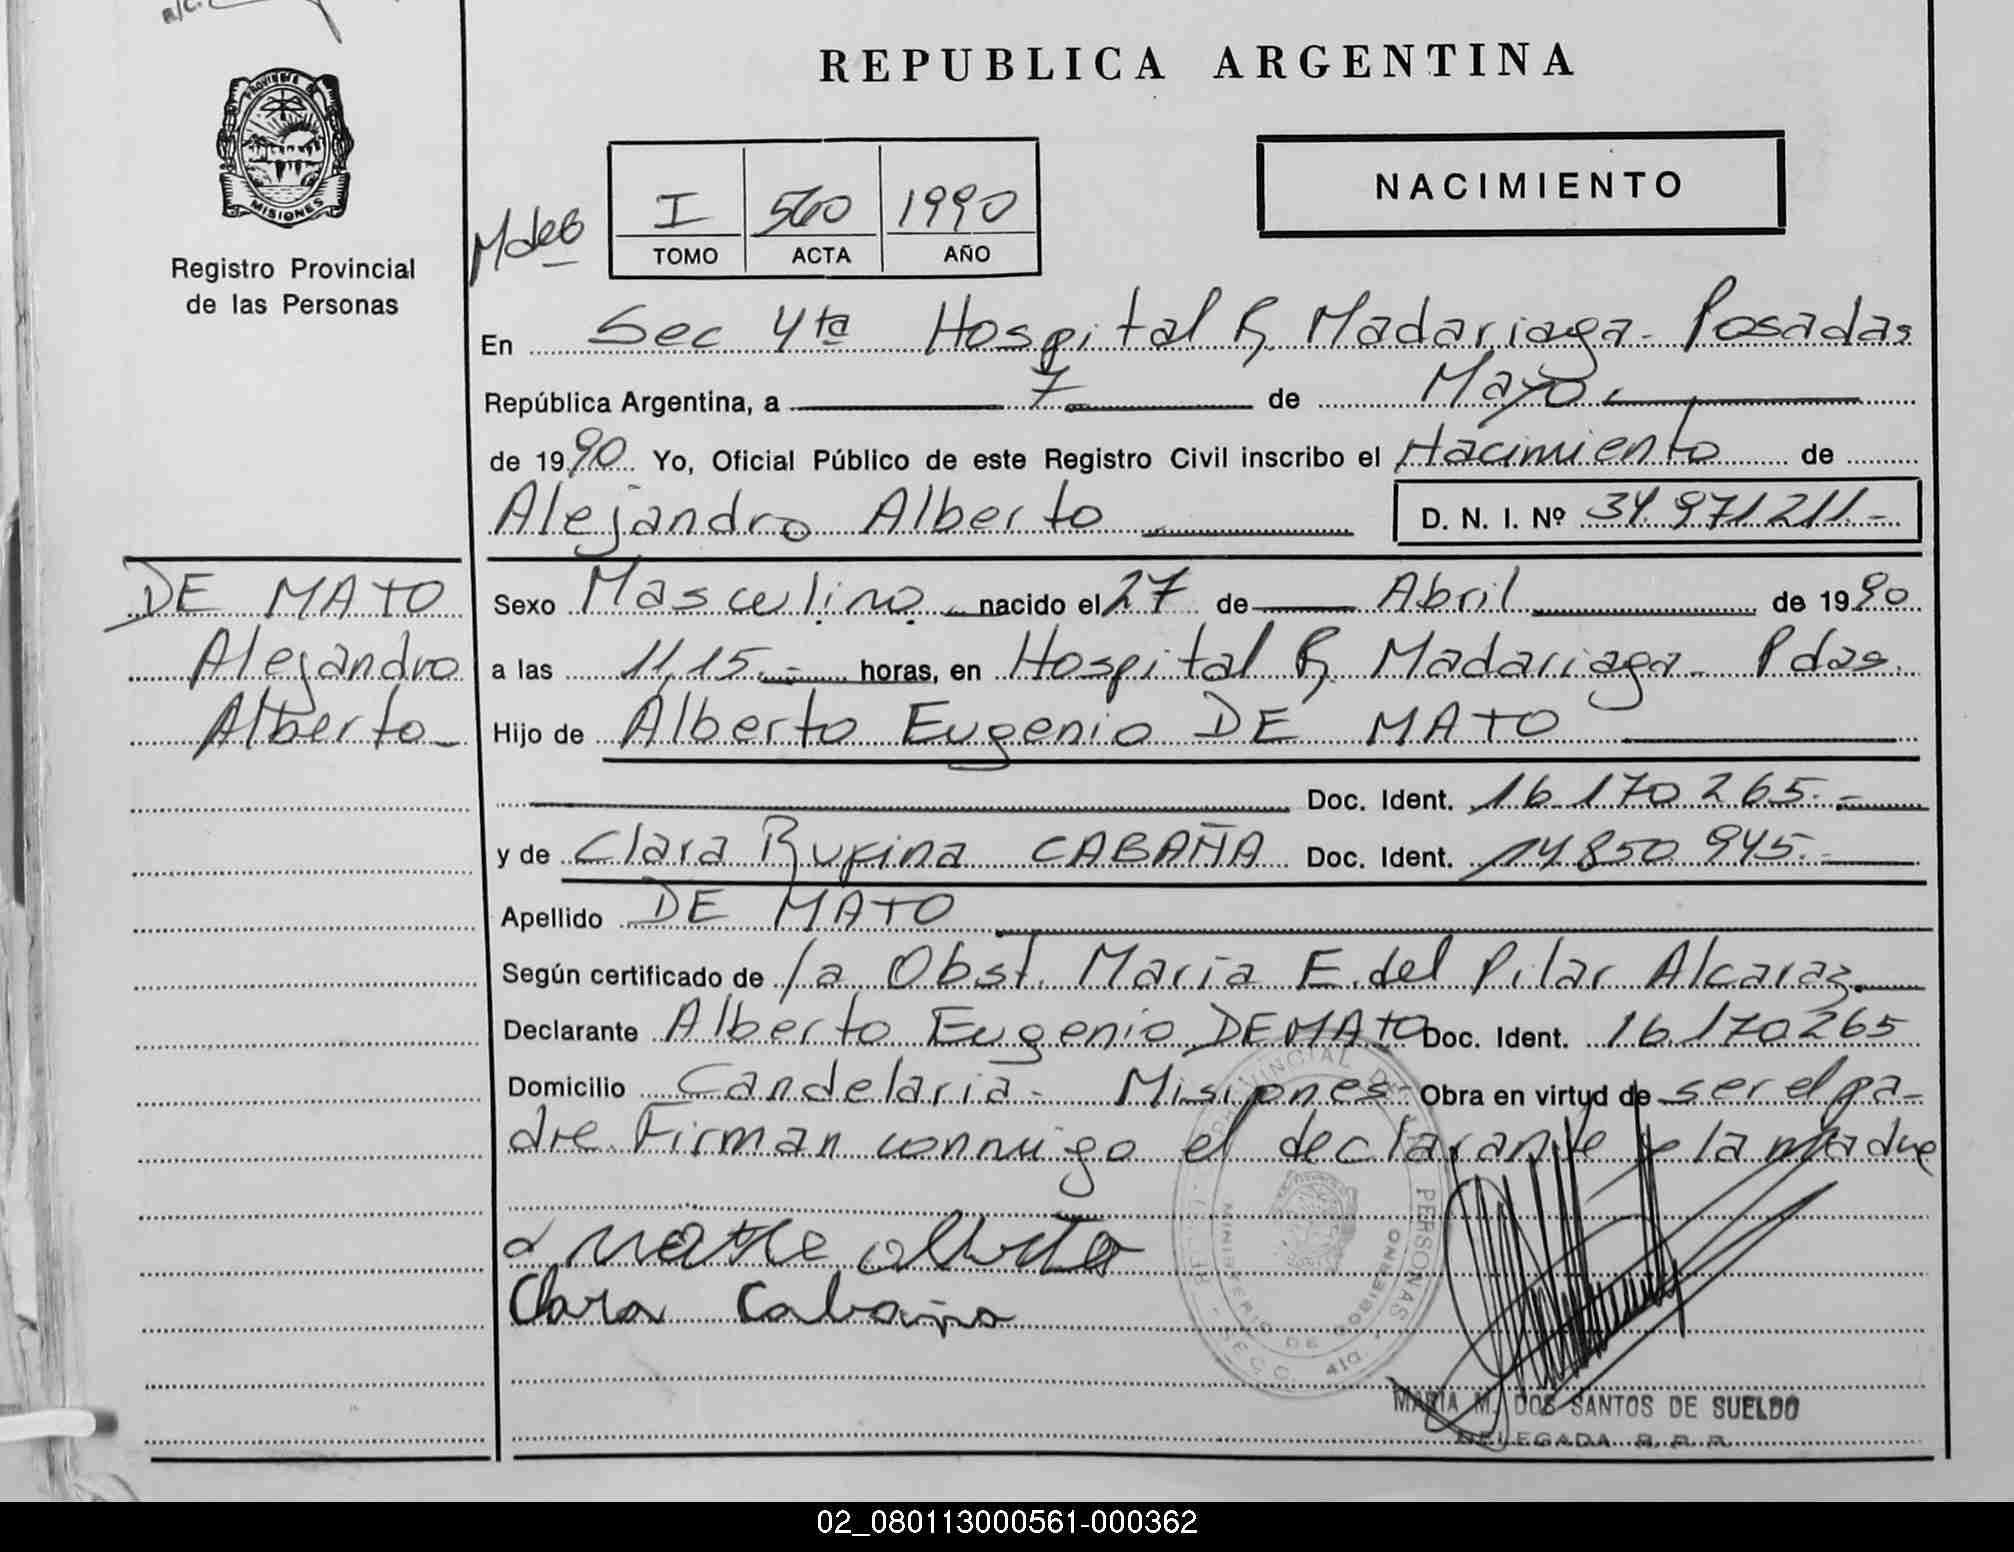 REPUBLICA ARGENTINA
PROVINCIA DE
MISIONES
Registro Provincial
de las Personas
I 560 1990
TOMO ACTA AÑO
NACIMIENTO
En Sec 4ta Hospital R. Madariaga - Posadas
República Argentina, a 7 de Mayo
de 1990 Yo, Oficial Público de este Registro Civil inscribo el Nacimiento de
Alejandro Alberto D. N. I. Nº 34.971211.-
DE MATO
Alejandro
Alberto-
Sexo Masculino nacido el 27 de Abril de 1990
a las 11,15.- horas, en Hospital R. Madariaga - Pdas.
Hijo de Alberto Eugenio DE MATO
Doc. Ident. 16.170.265.-
y de Clara Rufina CABAÑA Doc. Ident. 14.850.945.-
Apellido DE MATO
Según certificado de la Obst. Maria E. del Pilar Alcaraz.
Declarante Alberto Eugenio DE MATO Doc. Ident. 16.170265
Domicilio Candelaria - Misiones - Obra en virtud de ser el pa-
dre. Firman conmigo el declarante y la madre
Clara Cabaña
PROVINCIAL DE LAS PERSONAS
MINISTERIO DE GOBIERNO
SECC. 4ta.
MARIA M. DOS SANTOS DE SUELDO
DELEGADA R. P. P.
02_080113000561-000362